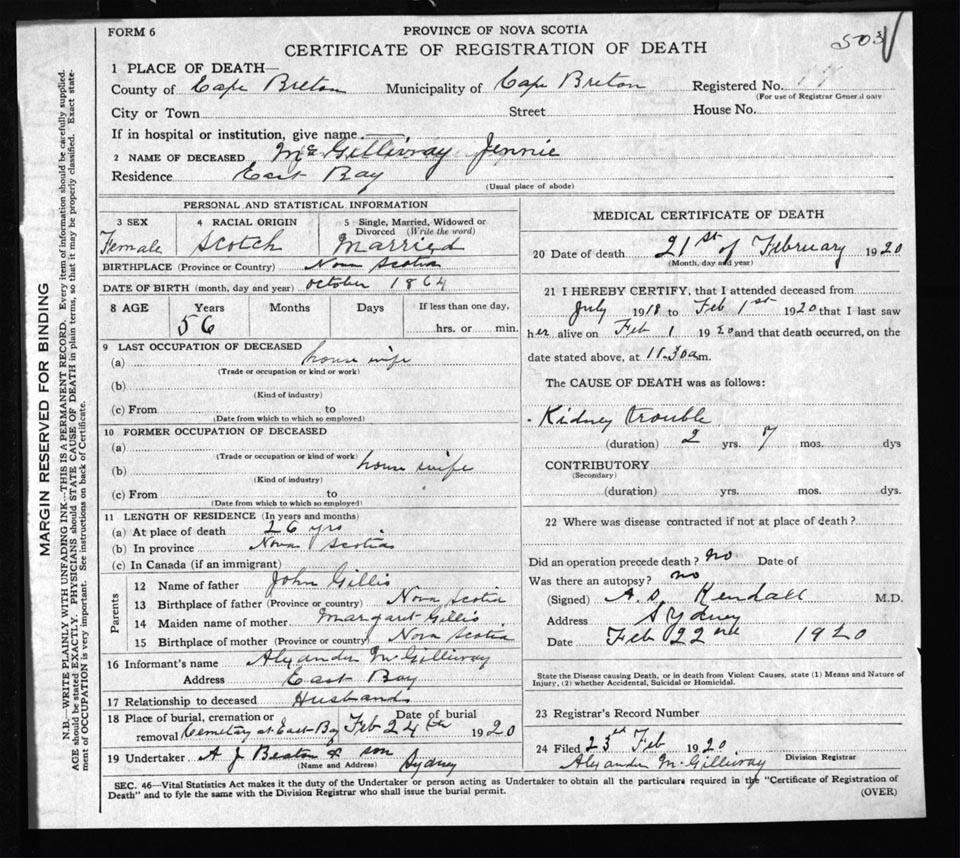 FORM 6
PROVINCE OF NOVA SCOTIA
503
CERTIFICATE OF REGISTRATION OF DEATH
1 PLACE OF DEATH—
County of Cape Breton Municipality of Cape Breton Registered No.
(For use of Registrar General only
City or Town Street House No.
If in hospital or institution, give name
2 NAME OF DECEASED McGillivray Jennie
Residence East Bay
(Usual place of abode)
PERSONAL AND STATISTICAL INFORMATION
3 SEX 4 RACIAL ORIGIN 5 Single, Married, Widowed or
Divorced (Write the word)
Female Scotch Married
BIRTHPLACE (Province or Country) Nova Scotia
DATE OF BIRTH (month, day and year) October 1864
8 AGE Years Months Days If less than one day,
56 hrs. or min.
9 LAST OCCUPATION OF DECEASED
(a) house wife
(Trade or occupation or kind or work)
(b)
(Kind of industry)
(c) From to
(Date from which to which so employed)
10 FORMER OCCUPATION OF DECEASED
(a)
(Trade or occupation or kind of work)
(b) house wife
(Kind of industry)
(c) From to
(Date from which to which so employed)
11 LENGTH OF RESIDENCE (In years and months)
(a) At place of death 26 yrs
(b) In province Nova Scotia
(c) In Canada (if an immigrant)
Parents
12 Name of father John Gillis
13 Birthplace of father (Province or country) Nova Scotia
14 Maiden name of mother Margart Gillis
15 Birthplace of mother (Province or country) Nova Scotia
16 Informant's name Alexander McGillivray
Address East Bay
17 Relationship to deceased Husband
18 Place of burial, cremation or Date of burial
removal Cemetary at East Bay Feb 24th 1920
19 Undertaker A J Beaton & son Sydney
(Name and Address)
MEDICAL CERTIFICATE OF DEATH
20 Date of death 21st of February 1920
(Month, day and year)
21 I HEREBY CERTIFY, that I attended deceased from
July 1918 to Feb 1st 1920 that I last saw
her alive on Feb 1 1920 and that death occurred, on the
date stated above, at 11.30 a m.
The CAUSE OF DEATH was as follows:
Kidney trouble
(duration) 2 yrs. 7 mos. dys
CONTRIBUTORY
(Secondary)
(duration) yrs. mos. dys.
22 Where was disease contracted if not at place of death?
Did an operation precede death? no Date of
Was there an autopsy? no
(Signed) A. D. Kendall M.D.
Address Sydney
Date Feb 22nd 1920
State the Disease causing Death, or in death from Violent Causes, state (1) Means and Nature of
Injury, (2) whether Accidental, Suicidal or Homicidal.
23 Registrar's Record Number
24 Filed 23rd Feb 1920
Alyander McGillivray Division Registrar
SEC. 46—Vital Statistics Act makes it the duty of the Undertaker or person acting as Undertaker to obtain all the particulars required in the "Certificate of Registration of
Death" and to fyle the same with the Division Registrar who shall issue the burial permit. (OVER)
MARGIN RESERVED FOR BINDING
N.B.—WRITE PLAINLY WITH UNFADING INK—THIS IS A PERMANENT RECORD. Every item of information should be carefully supplied.
AGE should be stated EXACTLY. PHYSICIANS should STATE CAUSE OF DEATH in plain terms, so that it may be properly classified. Exact state-
ment of OCCUPATION is very important. See instructions on back of Certificate.